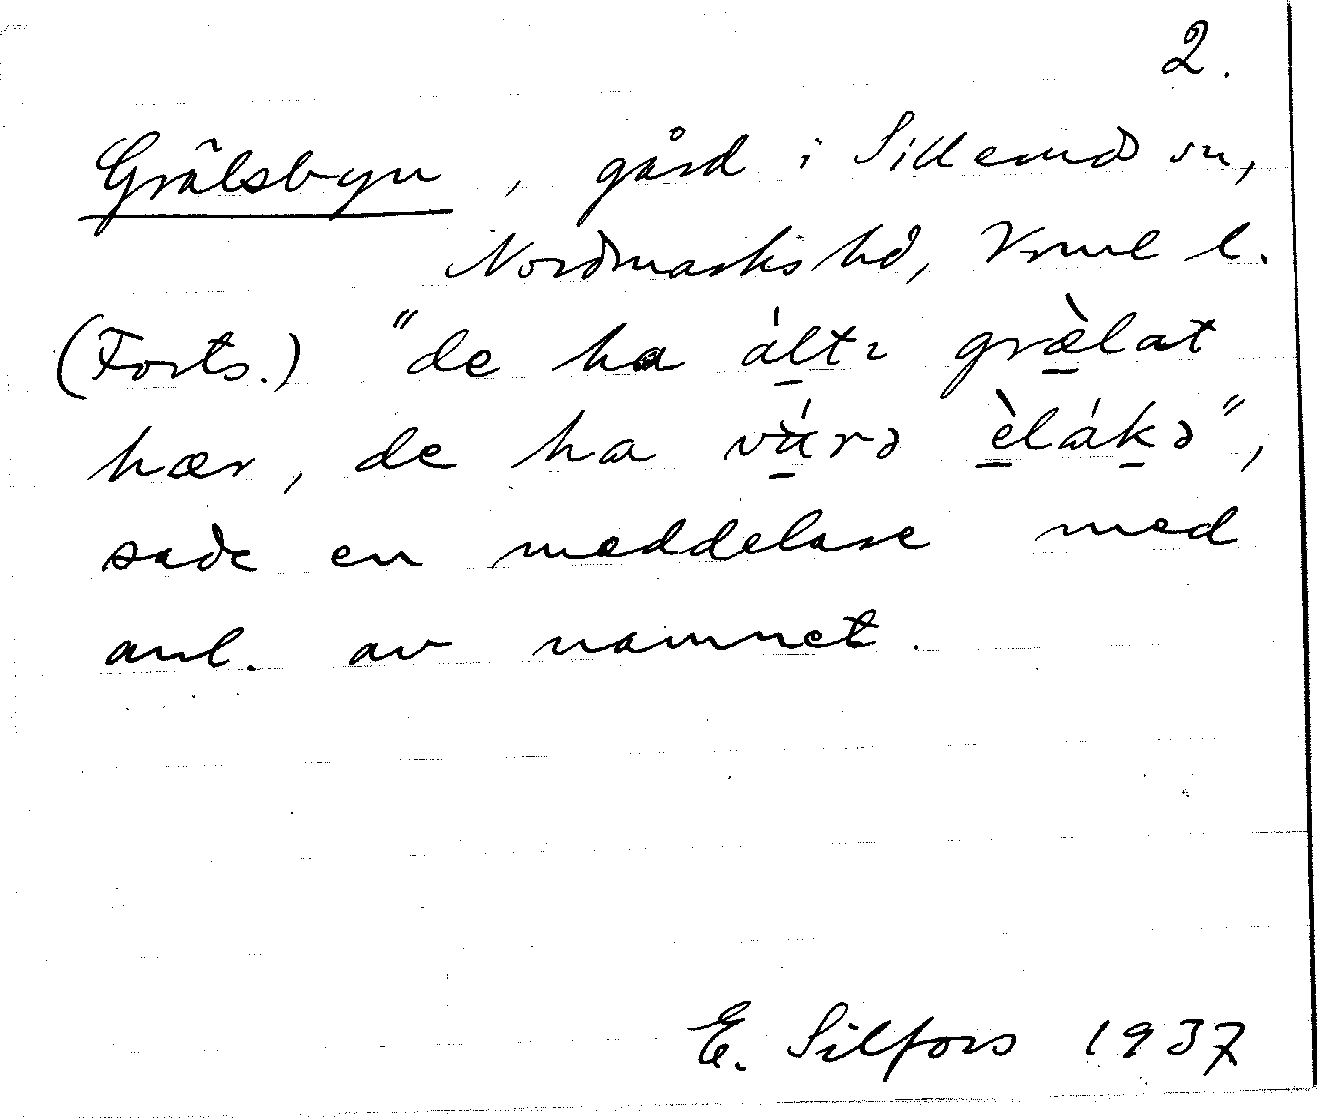 2.
Grälsbyn, gård i Sillerud sn,
Nordmarks hd, Vrml l.
(Forts.) "de ha áltɩ græ̀lat
hær, de ha várə èláḵə",
sade en meddelare med
anl. av namnet.
E. Silfors 1937